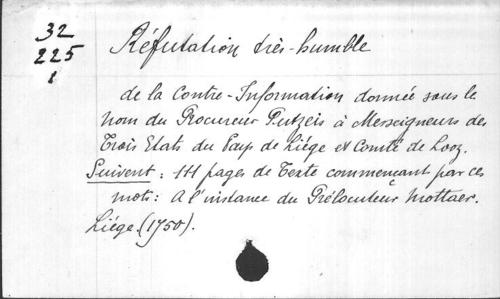 32
225
1
Réfutation très-humble
de la Contre-Information donnée sous le
nom du Procureur Putzeis à Messeigneurs des
Trois Etats du Pays de Liége et Comté de Looz.
Suivent : 111 pages de Texte commençant par ces
mots : A l'instance du Prélocuteur Mottaer.
Liége. (1750).